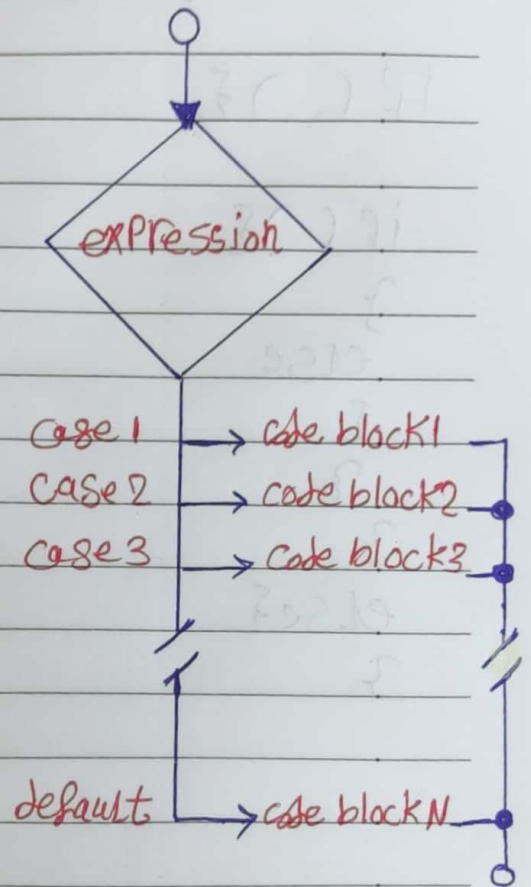 expression
case 1 code block1
case2 code block2
case3 code block3
default code block N